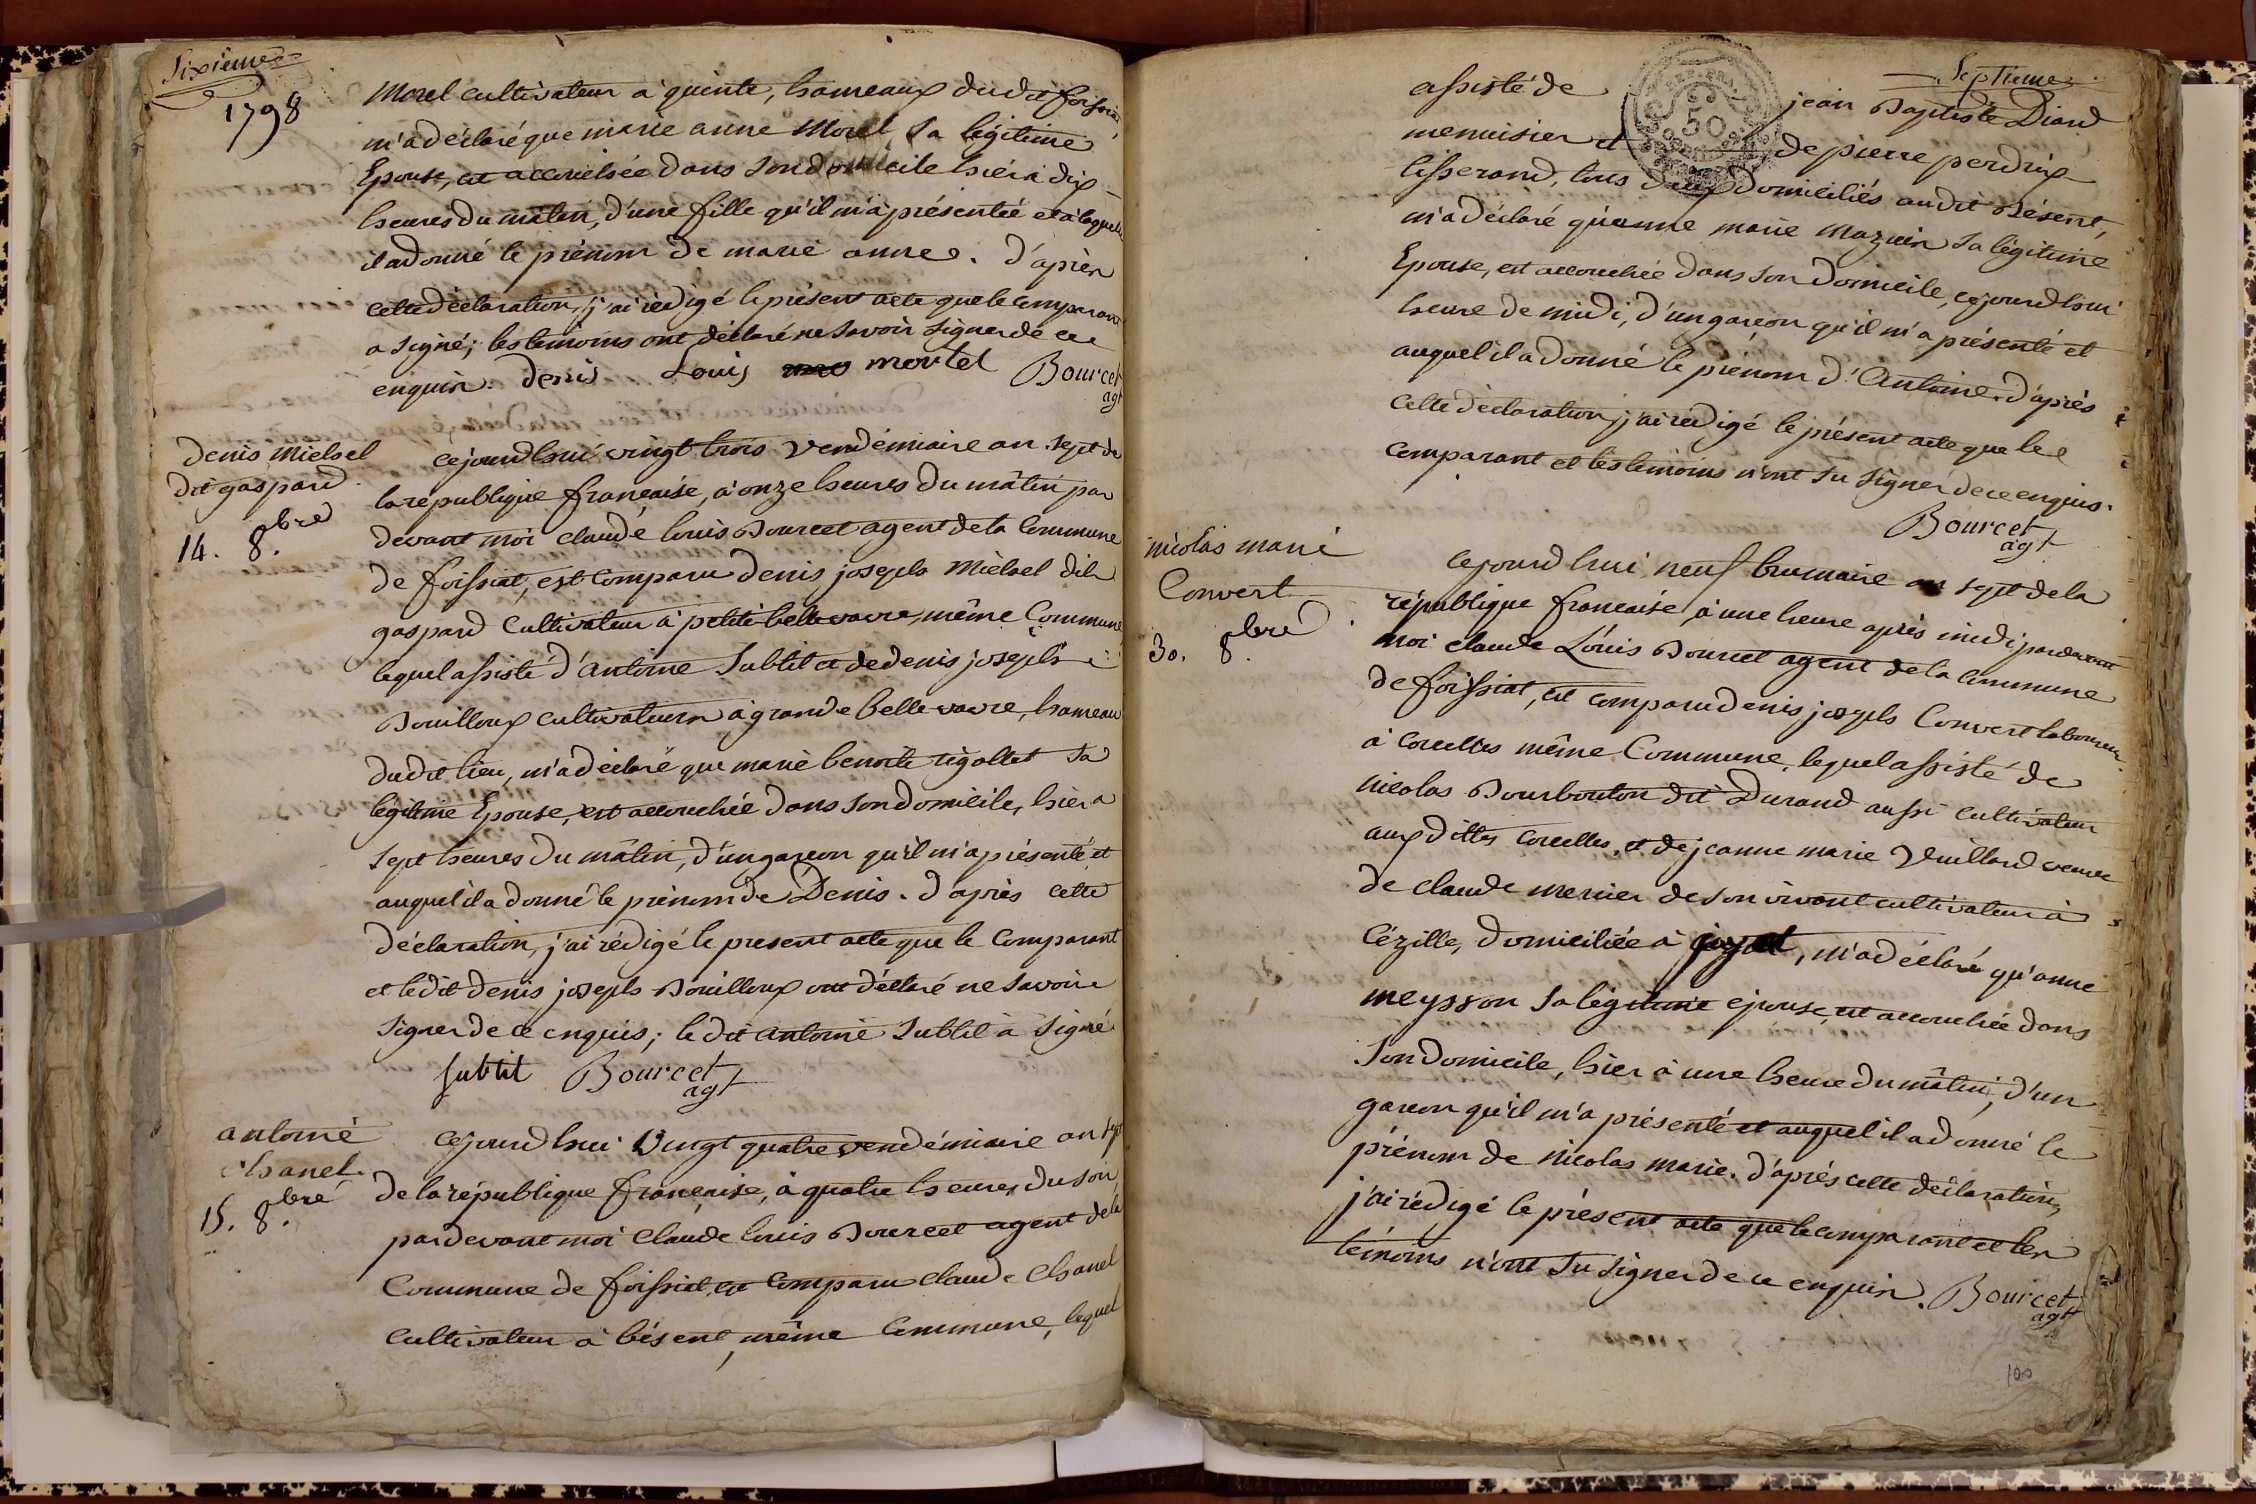 Sixieme
1798
Morel cultivateur a quinte, hameaux dudit foissiat,
m'a déclaré que marie anne Morel sa légitime
Epouse, est accouchée dans son domicile hier à dix
heures du matin, d'une fille qu'il m'a présentée et à laquelle
il a donné le prénom de marie anne. d'après
cette déclaration, j'ai rédigé le présent acte que le comparant
a signé; les temoins ont déclaré ne savoir signer de ce
enquis. denis Louis mortel Bourcet
agt
denis Michel
dit gaspard
14. 8bre
cejourdhui vingt trois vendémiaire an sept de
la république française, à onze heures du mâtin par
devant moi claude louis Bourcet agent de la Commune
de foissiat, est comparu denis joseph Michel dit
gaspard Cultivateur à petite belle vavre, même Commune
lequel assisté d'antoine Subtil et de denis joseph
Bouilloux cultivateurs à grande belle vavre, hameau
dudit lieu, m'a déclaré que marie benoite rigollet sa
légitime Epouse, est accouchée dans son domicile, hier a
sept heures du mâtin, d'un garcon qu'il m'a présenté et
auquel il a donné le prénom de Denis. d'après cette
déclaration, j'ai rédigé le present acte que le Comparant
et ledit denis joseph Bouilloux ont déclaré ne savoir
signer de ce enquis; le dit antoine Subtil à signé
subtil Bourcet
agt
antoine
chanel
15. 8bre
cejourdhui Vingt quatre vendémiaire an sept
de la république française, à quatre heures du soir
pardevant moi Claude louis Bourcet agent de la
Commune de foissiat, est comparu claude chanel
cultivateur à bésent, même Commune, lequel
Septieme
assisté de jean Baptiste Diard
menuisier et de pierre perdrix
tisserand, tous deux domiciliés audit Bésent,
m'a déclaré qu'anne marie mazuir sa légitime
Epouse, est accouchée dans son domicile, cejourdhui
heure de midi, d'un garcon qu'il m'a présenté et
auquel il a donné le prénom d'Antoine. d'après
cette déclaration, j'ai rédigé le présent acte que le
comparant et les temoins n'ont su signer de ce enquis.
Bourcet
agt
nicolas marie
Convert
30. 8bre
cejourd'hui neuf brumaire an sept de la
république francaise, à une heure après midi pardevant
moi claude Louis Bourcet agent de la commune
de foissiat, est comparu denis joseph Convert laboureur
à Corcelles même Commune, lequel assisté de
nicolas Bourbouton dit Durand aussi cultivateur
aux dittes corcelles, et de jeanne marie Vuillard veuve
de claude mercier de son vivant cultivateur à
Cézille, domiciliée à jayat, m'a déclaré qu'anne
meysson sa légitime epouse est accouchée dans
son domicile, hier à une heure du mâtin, d'un
garcon qu'il m'a présenté et auquel il a donné le
prénom de nicolas marie. d'après cette déclaration,
j'ai rédigé le présent acte que le comparant et les
témoins n'ont su signer de ce enquis. Bourcet
agt
100